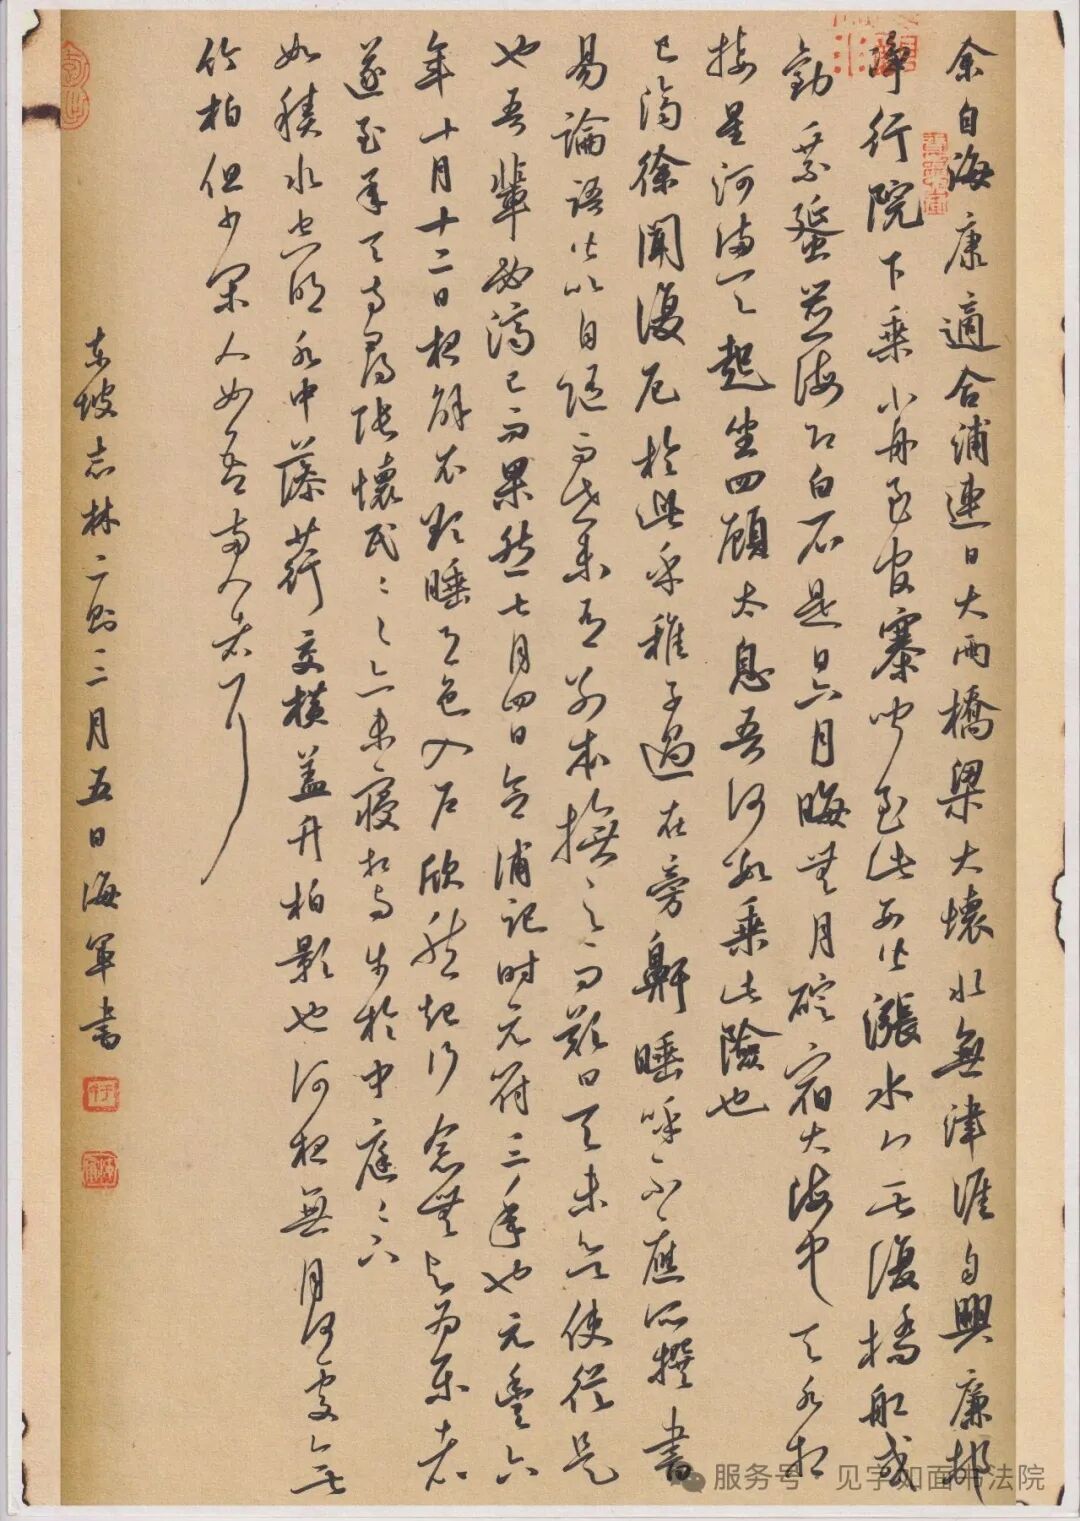 余自海康適合浦連日大雨橋梁大壞水無津涯自興廉邨
淨行院下乘小舟至官寨聞自此西皆漲水無復橋船或
勸乘蜑並海即白石是日六月晦無月碇宿大海中天水相
接星河滿天起坐四顧太息吾何數乘此險也
已濟徐聞復厄於此乎稚子過在旁鼾睡呼不應所撰書
易論語皆以自隨而世未有別本撫之而歎曰天未欲使從是
也吾輩必濟已而果然七月四日合浦記時元符三年也元豐六
年十月十二日夜解衣欲睡月色入戶欣然起行念無與為樂者
遂至承天寺尋張懷民懷民亦未寢相與步於中庭庭下
如積水空明水中藻荇交橫蓋竹柏影也何夜無月何處無
竹柏但少閑人如吾兩人者耳
東坡志林二則三月五日海軍書
服务号 见字如面书法院